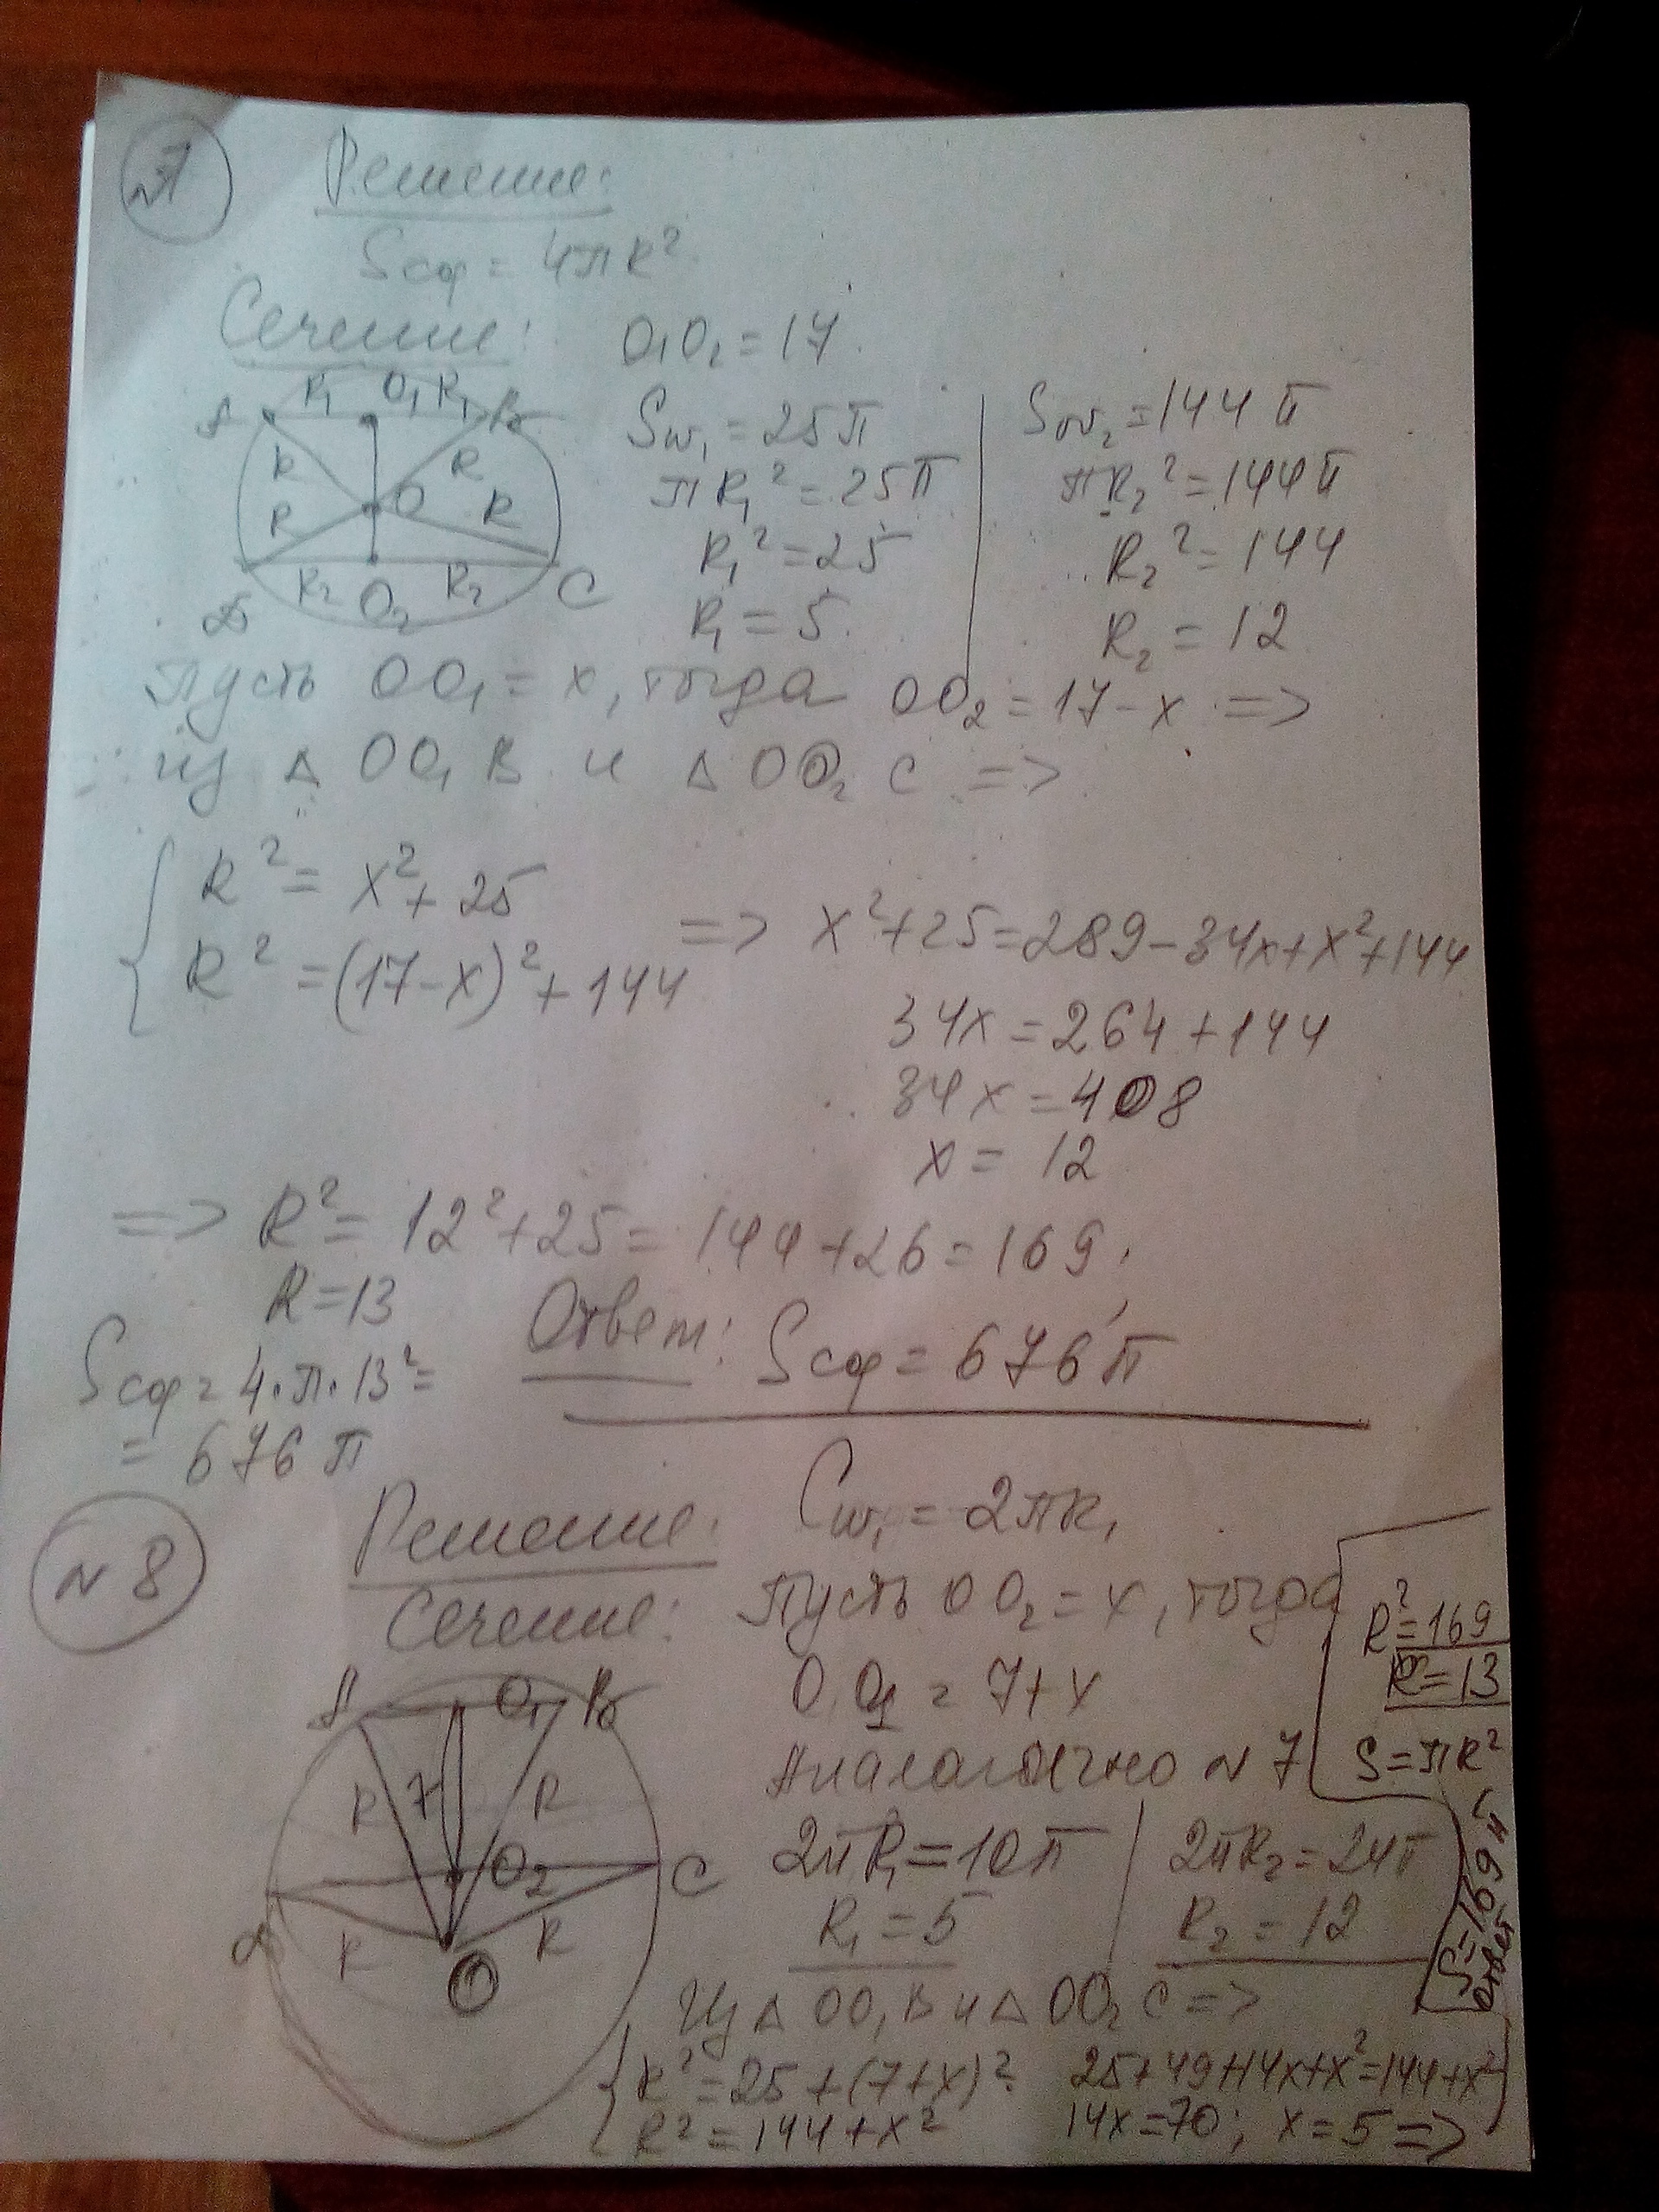 №7
Решение:
Sсф = 4πR²
Сечение:
O₁O₂ = 17
A R₁ O₁ R₁ B
R R
R O R
R₂ O₂ R₂ C
D
Sω₁ = 25π
πR₁² = 25π
R₁² = 25
R₁ = 5
Sω₂ = 144π
πR₂² = 144π
R₂² = 144
R₂ = 12
Пусть OO₁ = x, тогда OO₂ = 17 - x =>
из △ OO₁B и △ OO₂C =>
R² = x² + 25
R² = (17-x)² + 144
=> x² + 25 = 289 - 34x + x² + 144
34x = 264 + 144
34x = 408
x = 12
=> R² = 12² + 25 = 144 + 26 = 169.
R = 13
Sсф = 4·π·13² =
= 676π
Ответ: Sсф = 676π
№8
Решение:
Сечение:
A O₁ B
R 7 R
O₂ C
R R
O
Cω₁ = 2πR₁
Пусть OO₂ = x, тогда
OO₁ = 7 + x
Аналогично №7
2πR₁ = 10π
R₁ = 5
2πR₂ = 24π
R₂ = 12
Из △ OO₁B и △ OO₂C =>
R² = 25 + (7+x)²
R² = 144 + x²
25 + 49 + 14x + x² = 144 + x²
14x = 70; x = 5 =>
R² = 169
R = 13
S = πR²
S = 169π
ответ